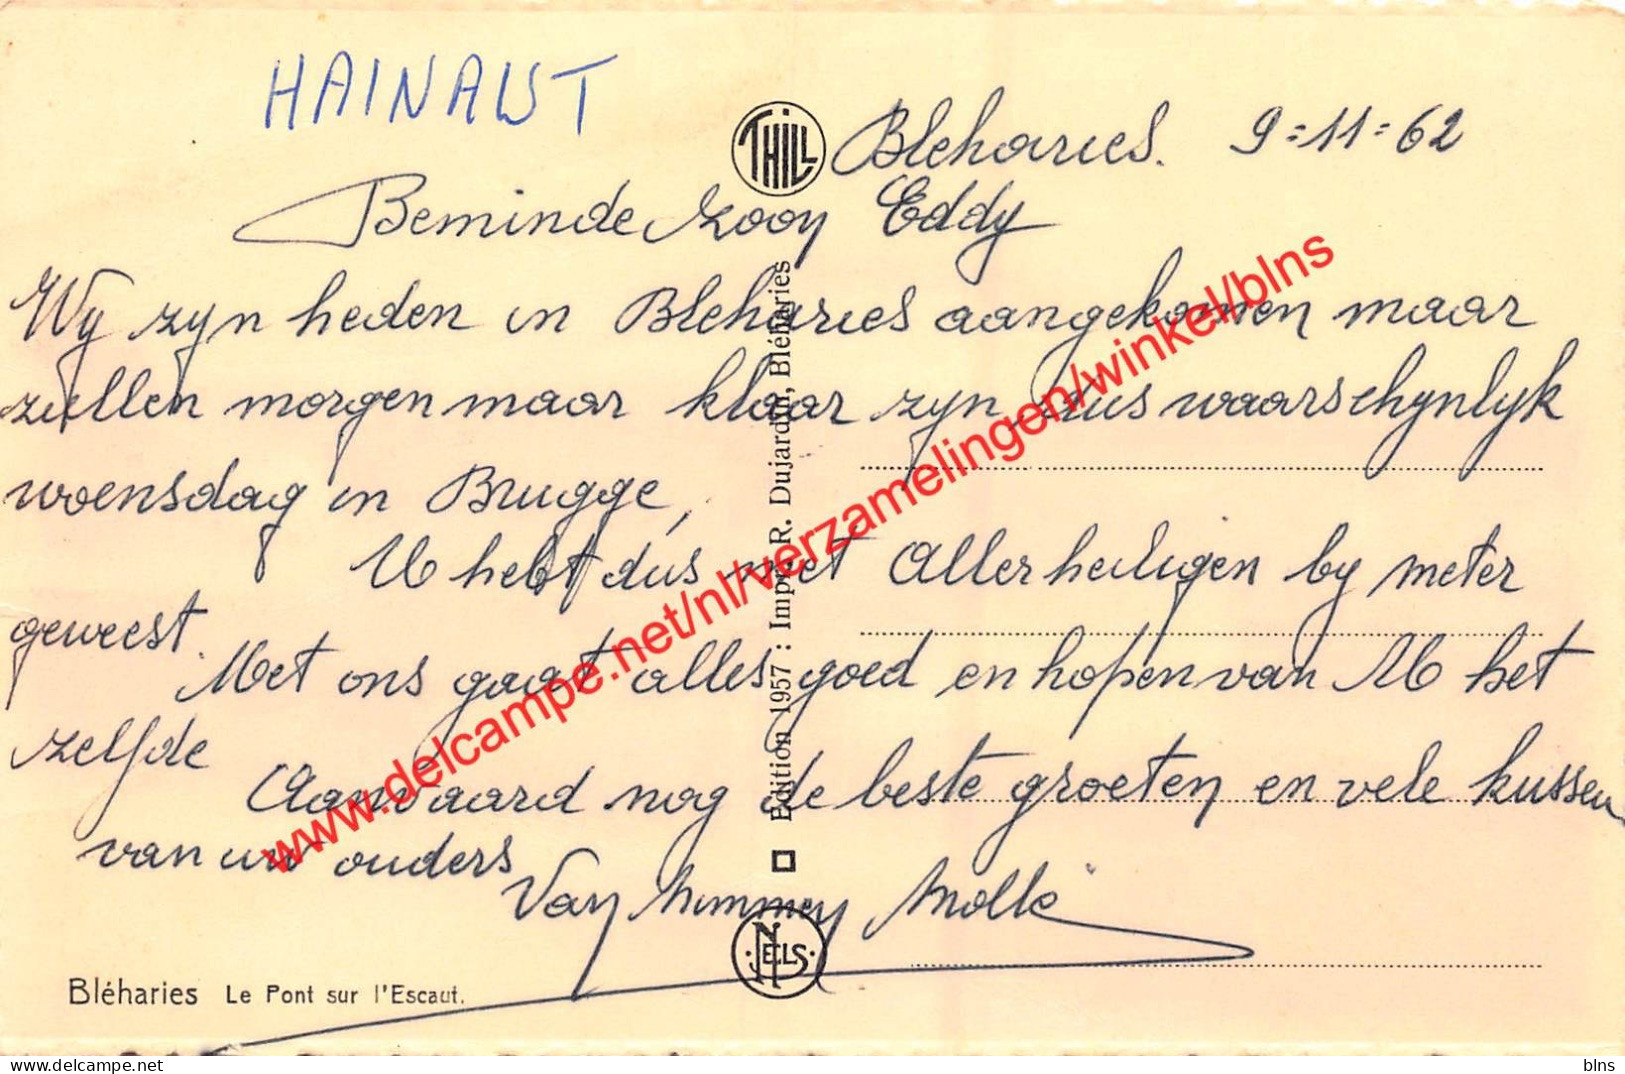 HAINAUT
THILL
Bleharies. 9=11=62
Beminde Zoon Eddy
Wy zyn heden in Bleharies aangekomen maar
zullen morgen maar klaar zyn dus waarschynlyk
woensdag in Brugge,
U hebt dus met Allerheiligen by meter
geweest.
Met ons gaat alles goed en hopen van U het
zelfde
Aanvaard nog de beste groeten en vele kussen
van uw ouders
Edition 1957 : Impr. R. Dujardin, Bléharies
NELS
Bléharies Le Pont sur l'Escaut.
www.delcampe.net/nl/verzamelingen/winkel/blns
delcampe.net
blns